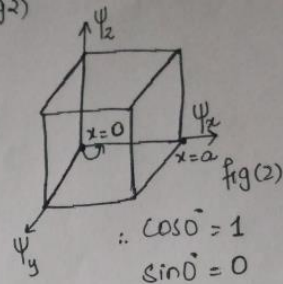 g2)
ψz
x=0
ψx
x=a
fig(2)
ψy
∴ cos0° = 1
sin0° = 0